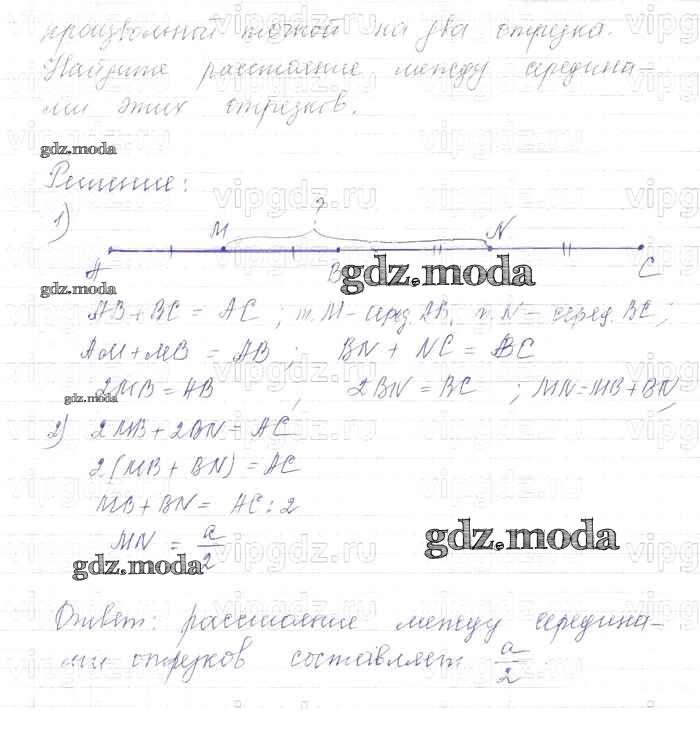 произвольной точкой на два отрезка.
Найдите расстояние между середина-
ми этих отрезков.
gdz.moda
Решение:
1)
?
M N
A B C
gdz.moda
gdz.moda
AB + BC = AC ; т. M - серед. AB, т. N - серед. BC;
AM + MB = AB ; BN + NC = BC
2MB = AB ; 2BN = BC ; MN = MB + BN;
gdz.moda
2) 2MB + 2BN = AC
2(MB + BN) = AC
MB + BN = AC : 2
MN = a/2
gdz.moda
gdz.moda
Ответ: расстояние между середина-
ми отрезков составляет a/2
vipgdz.ru